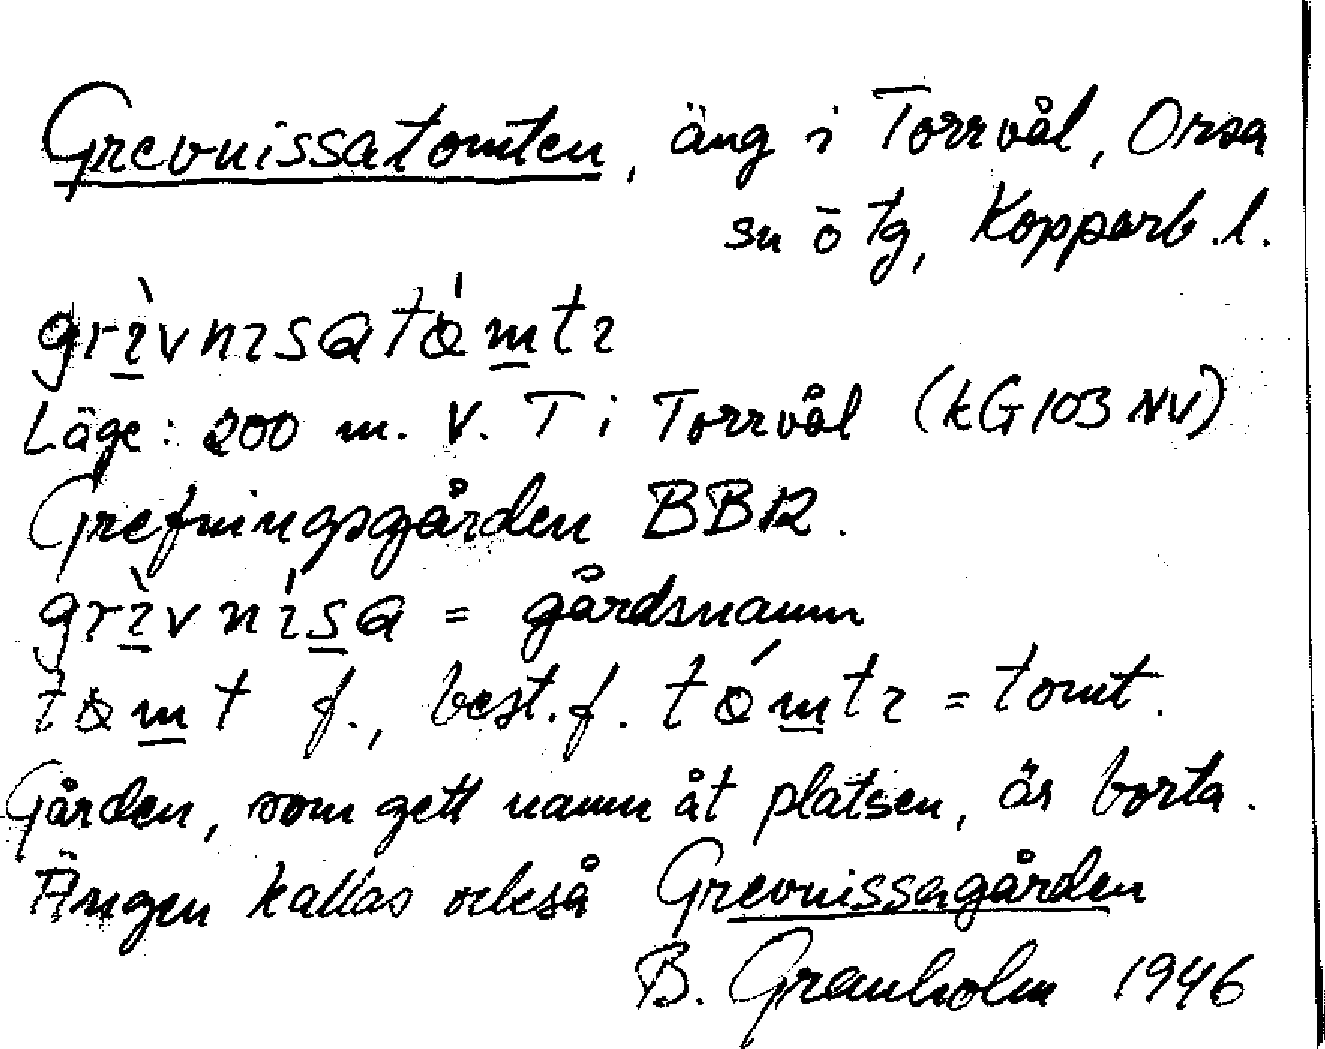 Grevnissatomten, äng i Torrvål, Orsa
sn ö tg, Kopparb. l.
grɩ̀vnɩsatǫ́mtɩ
Läge: 200 m. V. T i Torrvål (kG 103 NV)
Grefningsgården BB12.
grɩ̀vnɩ́sa = gårdsnamn
tǫmt f., best. f. tǫ́mtɩ = tomt.
Gården, som gett namn åt platsen, är borta.
Ängen kallas också Grevnissagården
B. Granholm 1946